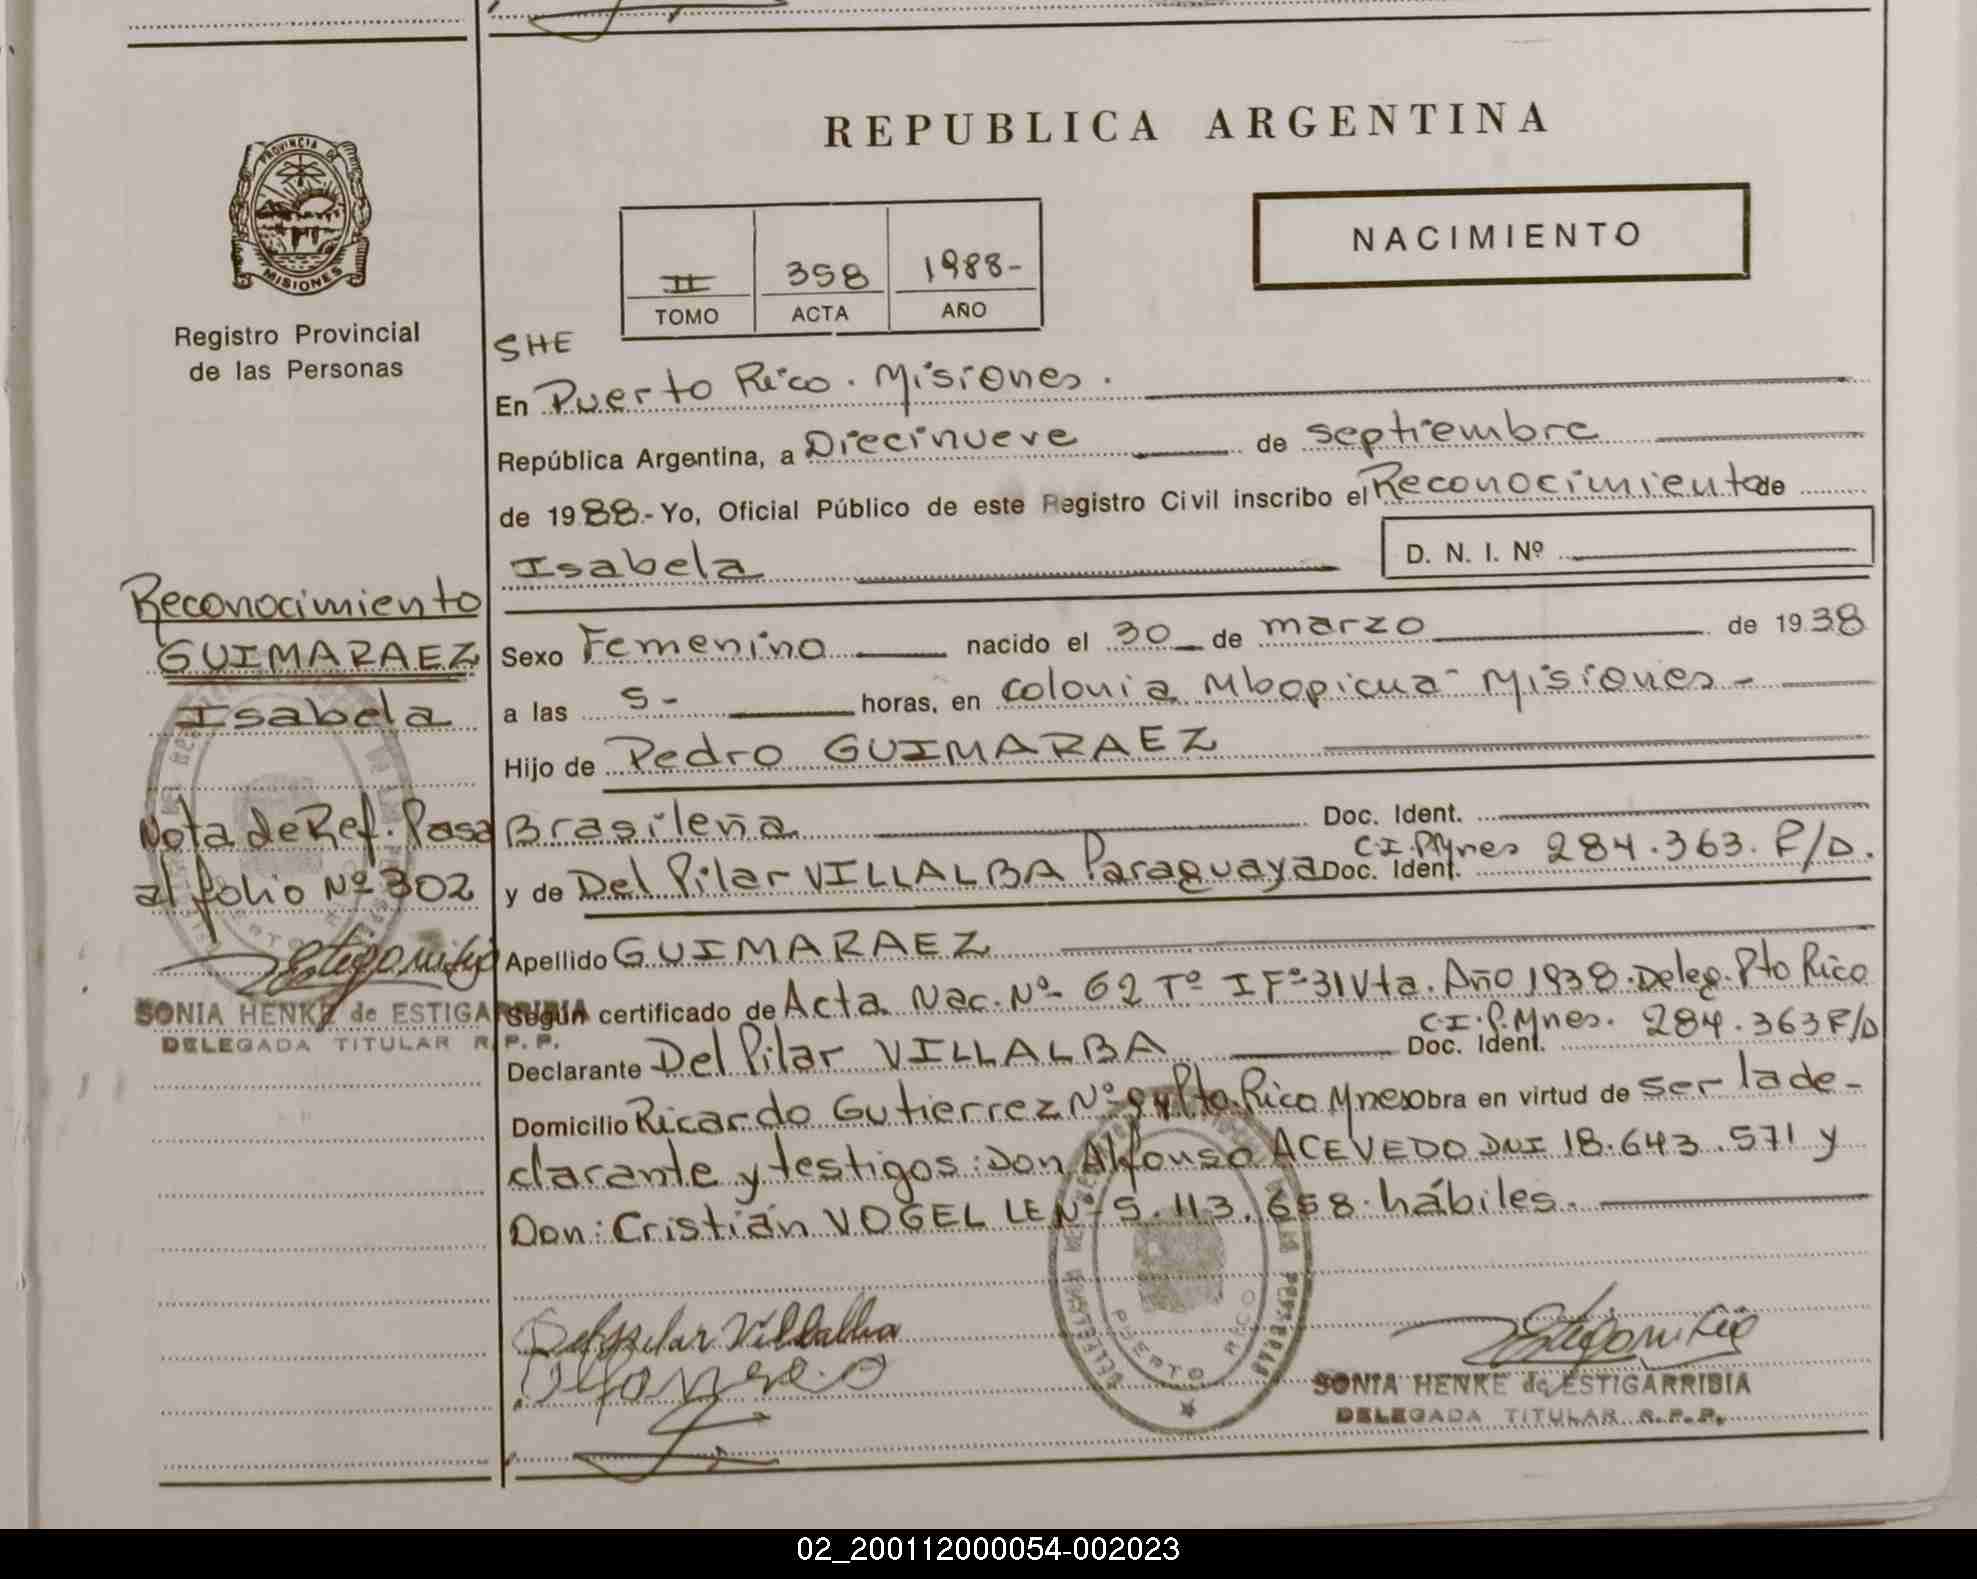 REPUBLICA ARGENTINA
PROVINCIA DE
MISIONES
Registro Provincial
de las Personas
NACIMIENTO
II 358 1988-
TOMO ACTA AÑO
SHE
En Puerto Rico. Misiones.
República Argentina, a Diecinueve de septiembre
de 1988.- Yo, Oficial Público de este Registro Civil inscribo el Reconocimiento de
Isabela D. N. I. Nº
Reconocimiento
GUIMARAEZ
Isabela
Nota de Ref. Pasa
al folio Nº 302
SONIA HENKE de ESTIGARRIBIA
DELEGADA TITULAR R.P.P.
Sexo Femenino nacido el 30 de marzo de 1938
a las 5- horas, en colonia Mbopicua - Misiones -
Hijo de Pedro GUIMARAEZ
Brasileña Doc. Ident.
y de Del Pilar VILLALBA Paraguaya Doc. Ident. C.I.P.Mnes 284.363. F/D.
Apellido GUIMARAEZ
Según certificado de Acta Nac. Nº 62 Tº I Fº 31 Vta. Año 1938. Deleg. Pto Rico
Declarante Del Pilar VILLALBA Doc. Ident. C.I.P.Mnes. 284.363 F/D
Domicilio Ricardo Gutierrez Nº Pto. Rico Mnes obra en virtud de ser la de-
clarante y testigos: Don Alfonso ACEVEDO DNI 18.643.571 y
Don: Cristián VOGEL LE Nº 5.113.658 hábiles.
Del pilar Villalba
PUERTO RICO
SONIA HENKE de ESTIGARRIBIA
DELEGADA TITULAR R.P.P.
02_200112000054-002023